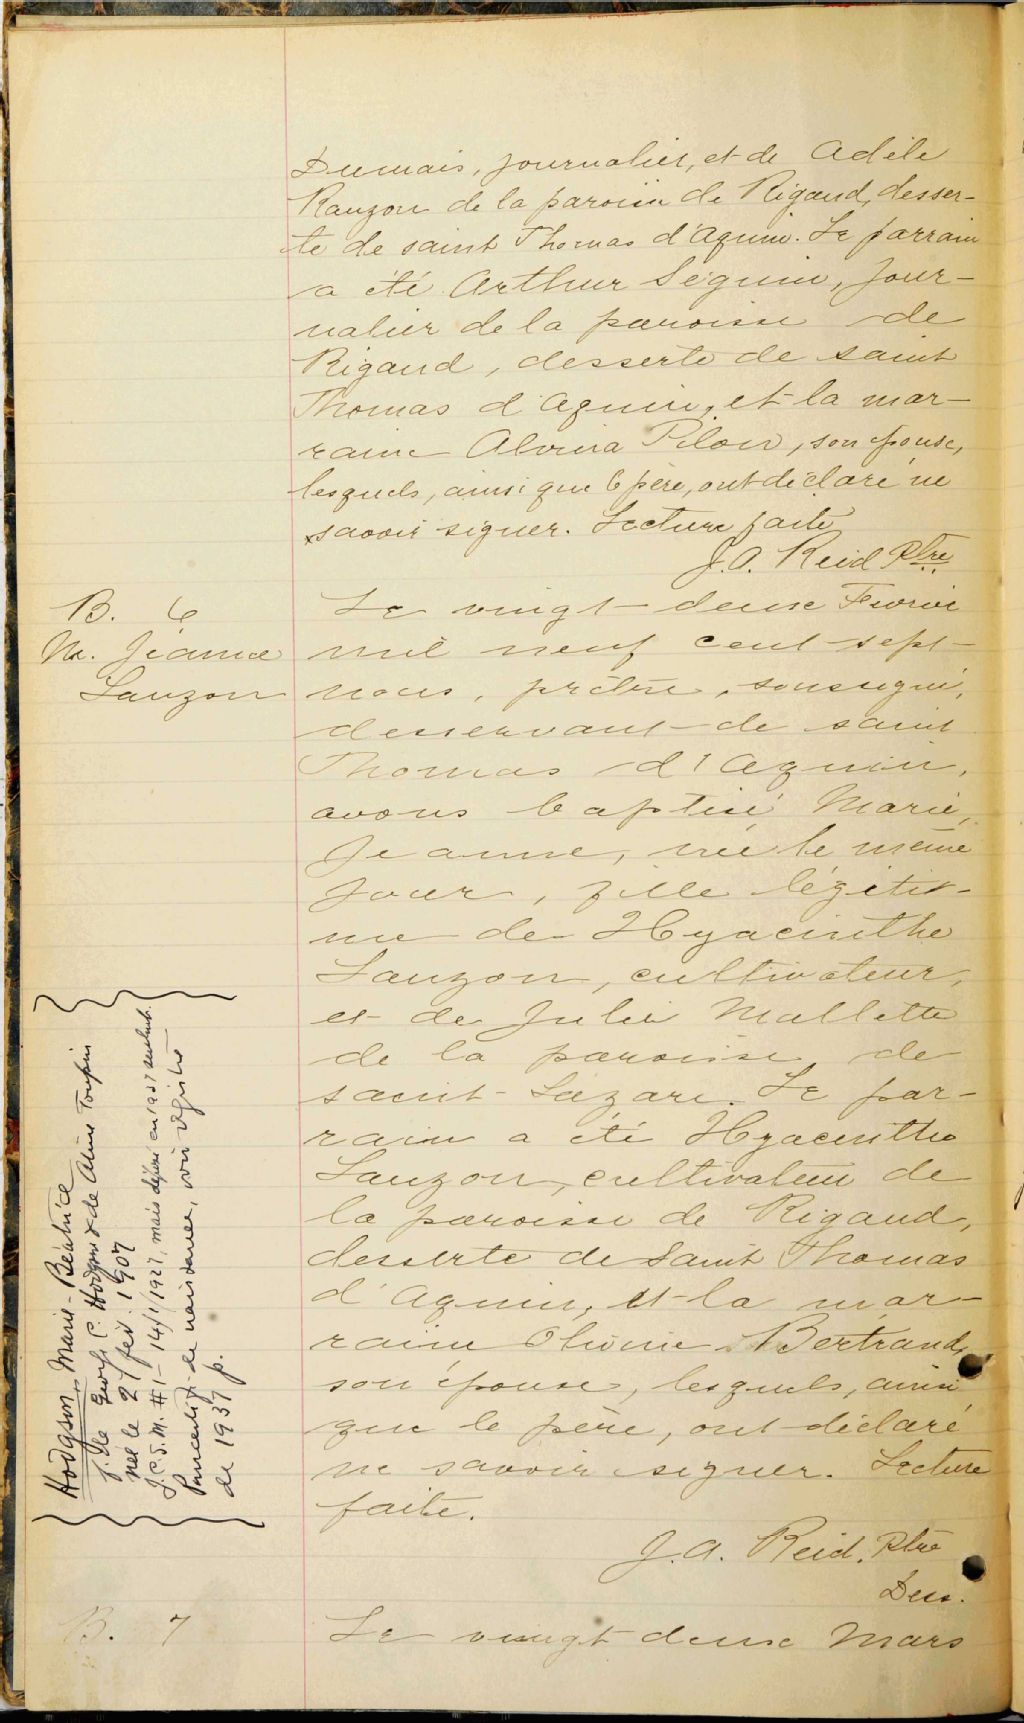 Dumais, journalier, et de Adèle
Rauzon de la paroisse de Rigaud, desser-
te de saint Thomas d'Aquin. Le parrain
a été Arthur Séguin, jour-
nalier de la paroisse de
Rigaud, desserte de saint
Thomas d'Aquin, et la mar-
raine Alvina Pilon, son épouse,
lesquels, ainsi que le père, ont déclaré ne
savoir signer. Lecture faite
J.A. Reid Ptre
B. 6
M. Jeanne
Lauzon
Le vingt-deux Février
mil neuf cent sept
nous, prêtre, soussigné,
desservant de saint
Thomas d'Aquin,
avons baptisé Marie,
Jeanne, née le même
jour, fille légiti-
me de Hyacinthe
Lauzon, cultivateur,
et de Julie Mallette
de la paroisse de
saint-Lazare. Le par-
rain a été Hyacinthe
Lauzon, cultivateur de
la paroisse de Rigaud,
desserte de saint Thomas
d'Aquin, et la mar-
raine Olivine Bertrand,
son épouse, lesquels, ainsi
que le père, ont déclaré
ne savoir signer. Lecture
faite.
J.A. Reid, Ptre
Dess.
Hodgson, Marie-Béatrice
f. de George C. Hodgson & de Aline Toupin
née le 27 fév. 1907
J.C.S.M. #1 - 14/1/1927, mais déposé en 1937 seulmt.
de naissance, voir régistre
de 1937 p.
B. 7
Le vingt deux Mars